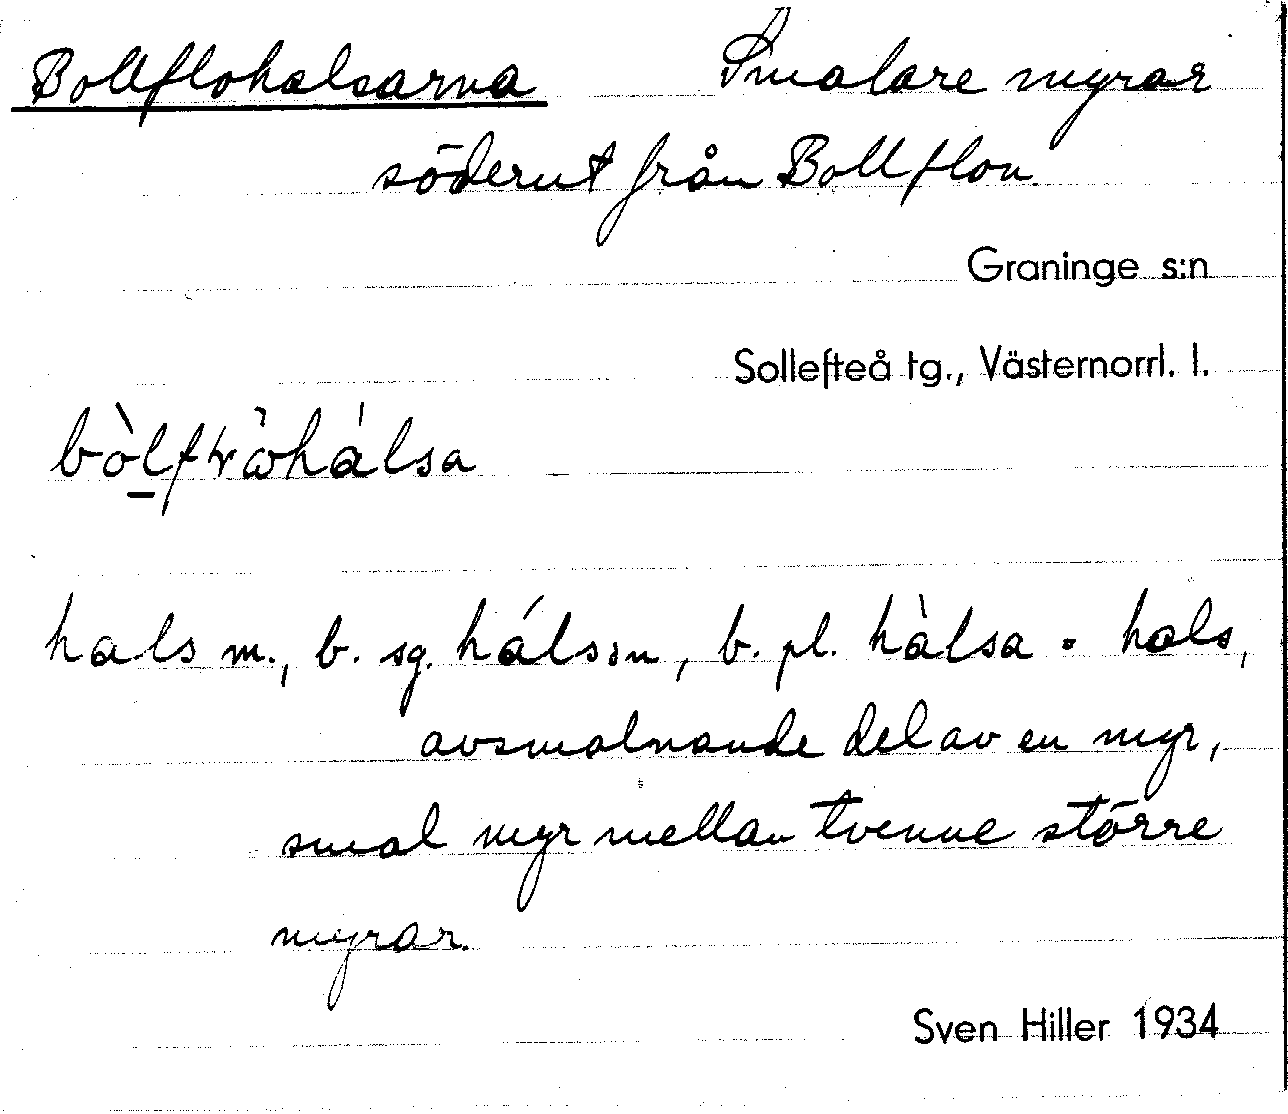 Bollflohalsarna Smalare myrar
söderut från Bollflon.
Graninge s:n
Sollefteå tg., Västernorrl. l.
hals m., b. sg. hálsən, b. pl. hàlsa = hals,
avsmalnande del av en myr,
smal myr mellan tvenne större
myrar.
Sven Hiller 1934